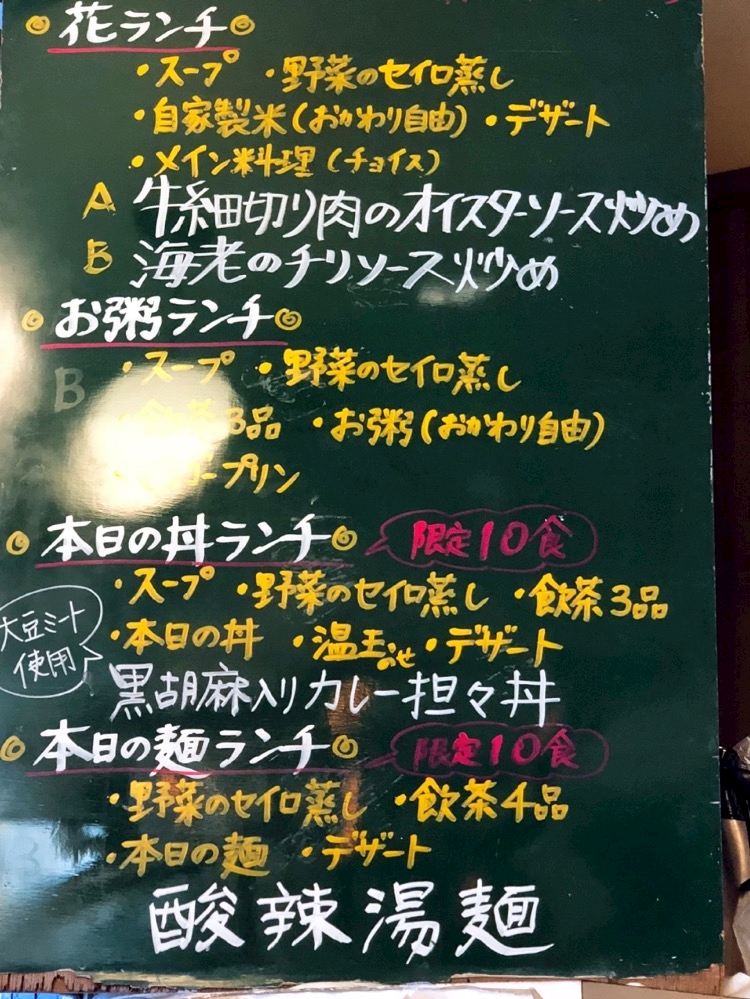 花ランチ
・スープ ・野菜のセイロ蒸し
・自家製米(おかわり自由) ・デザート
・メイン料理(チョイス)
A 牛細切り肉のオイスターソース炒め
B 海老のチリソース炒め
お粥ランチ
・スープ ・野菜のセイロ蒸し
飲茶3品 ・お粥(おかわり自由)
プリン
本日の丼ランチ 限定10食
・スープ ・野菜のセイロ蒸し ・飲茶3品
・本日の丼 ・温玉のせ ・デザート
大豆ミート
使用
黒胡麻入りカレー担々丼
本日の麺ランチ 限定10食
・野菜のセイロ蒸し ・飲茶4品
・本日の麺 ・デザート
酸辣湯麺